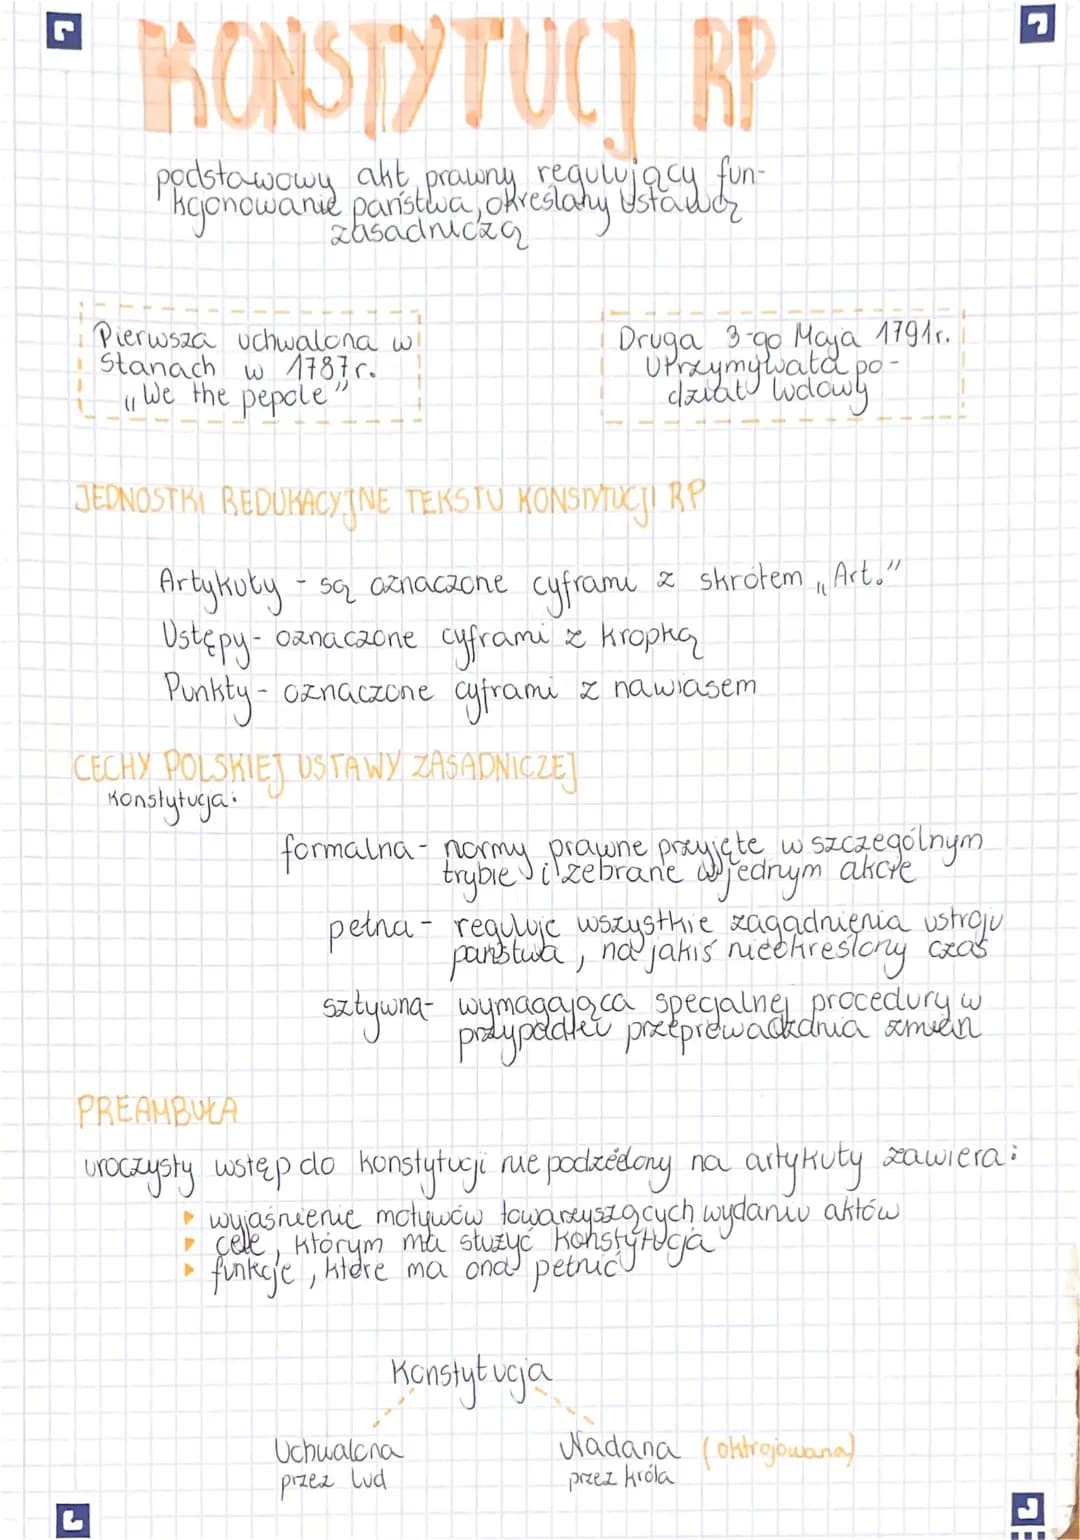 KONSTYTUCJ RP
podstawowy akt prawny regulujący fun-
kcjonowanie państwa, określany Ustawą
zasadniczą
Pierwsza uchwalona w
Stanach w 1787r.
„We the pepole"
Druga 3-go Maja 1791r.
Utrzymywała po-
dział ludowy
JEDNOSTKI REDUKACYJNE TEKSTU KONSTYTUCJI RP
Artykuły - są oznaczone cyframi z skrótem „Art."
Ustępy - oznaczone cyframi z kropką
Punkty - oznaczone cyframi z nawiasem
CECHY POLSKIEJ USTAWY ZASADNICZEJ
Konstytucja:
formalna - normy prawne przyjęte w szczególnym
trybie i zebrane w jednym akcie
pełna - reguluje wszystkie zagadnienia ustroju
państwa, na jakiś nieokreślony czas
sztywna - wymagająca specjalnej procedury w
przypadku przeprowadzania zmian
PREAMBUŁA
uroczysty wstęp do konstytucji nie podzielony na artykuły zawiera:
wyjaśnienie motywów towarzyszących wydaniu aktów
cele, którym ma służyć Konstytucja
funkcje, które ma ona pełnić
Konstytucja
Uchwalona
przez lud
Nadana (oktrojowana)
przez króla